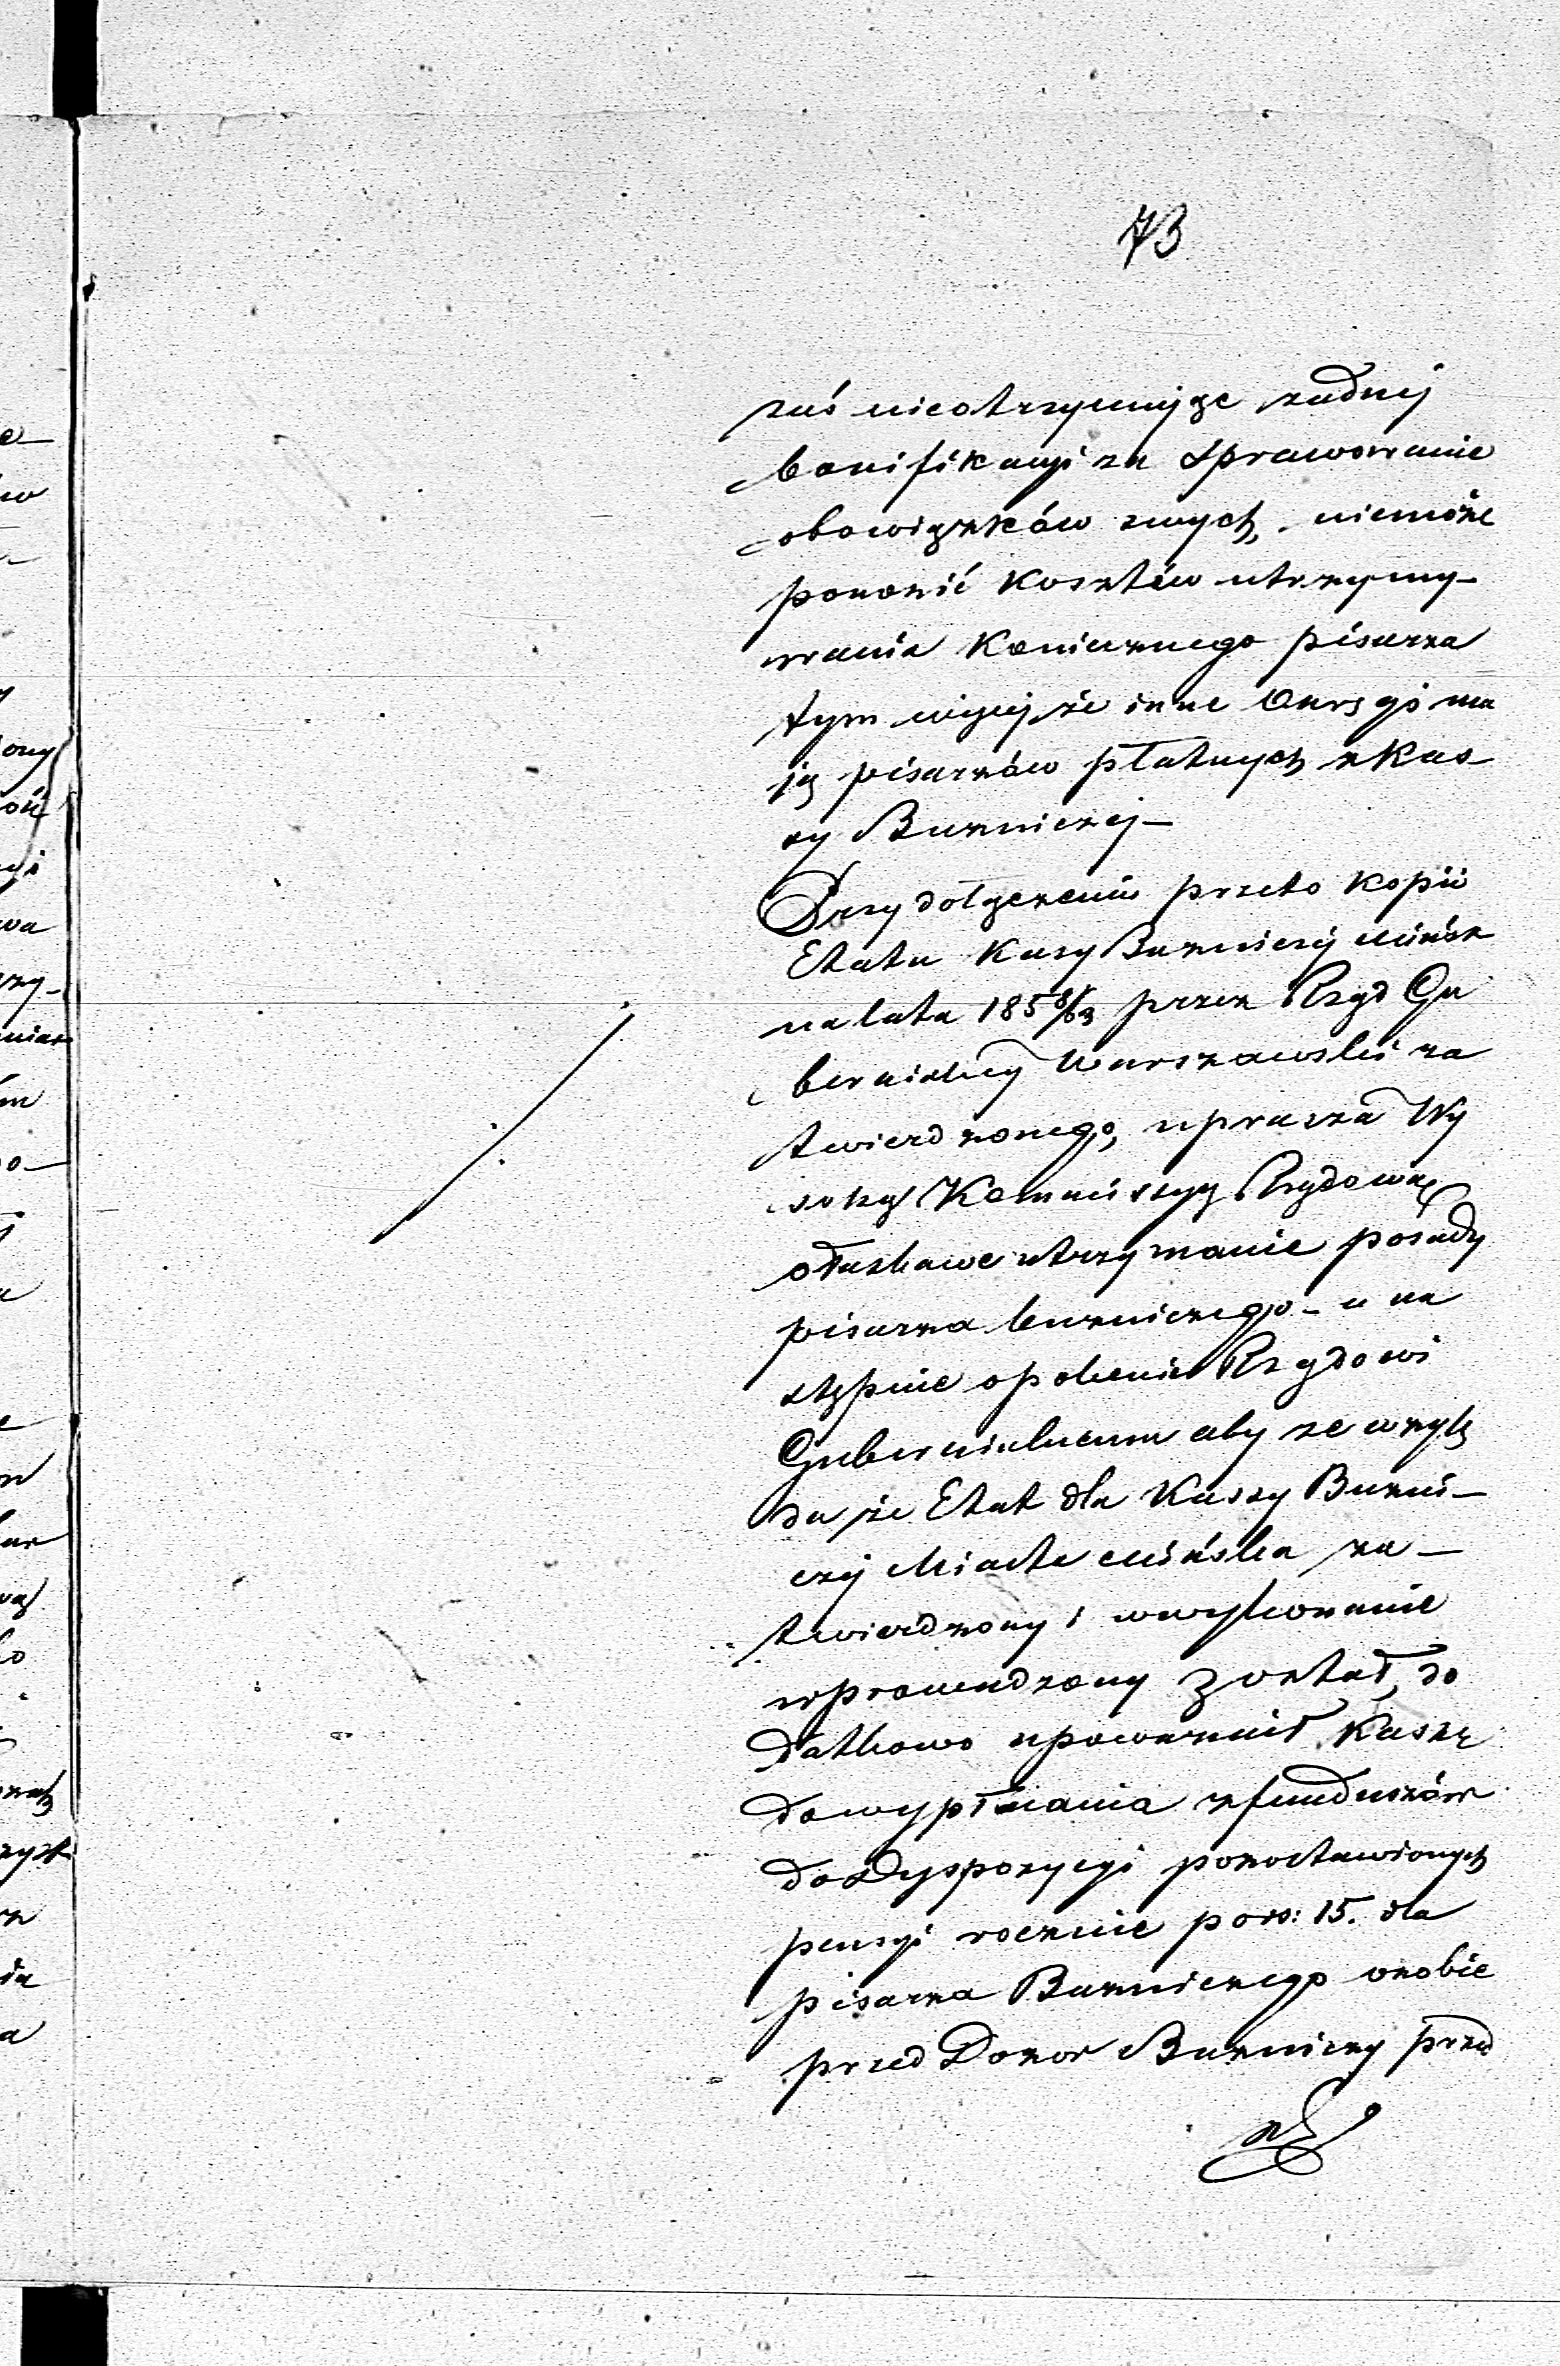 73
zaś nieotrzymując żadnej
bonifikacyi za sprawowanie
obowiązków swych, niemoże
ponosić kosztów utrzymy-
wania koniecznego pisarza
tym więcej że inne Okręgi ma
ją pisarzów płatnych z Kas-
sy Bużniczej-
Przy dołączeniu przeto kopii
Etatu Kasy Bużniczej Mińsk
na lata 1858/63 przez Rząd Gu
bernialny Warszawski za
twierdzonego, uprasza Wy
soką Kommissyą Rządową
o łaskawe utrzymanie posady
pisarza bużniczego - a na
stępnie o polecenie Rządowi
Gubernialnemu aby ze wzglę
du że Etat dla Kassy Bużni-
czej Miasta Mińska za-
twierdzony i w wykonanie
wprowadzony został, do
datkowo upoważnił Kassę
do wypłacania z funduszów
do Dyspozycyi pozostawionych
pensyi rocznie po rs: 15. dla
pisarza Bużniczego w osobie
przed Dozor Bużniczy przed